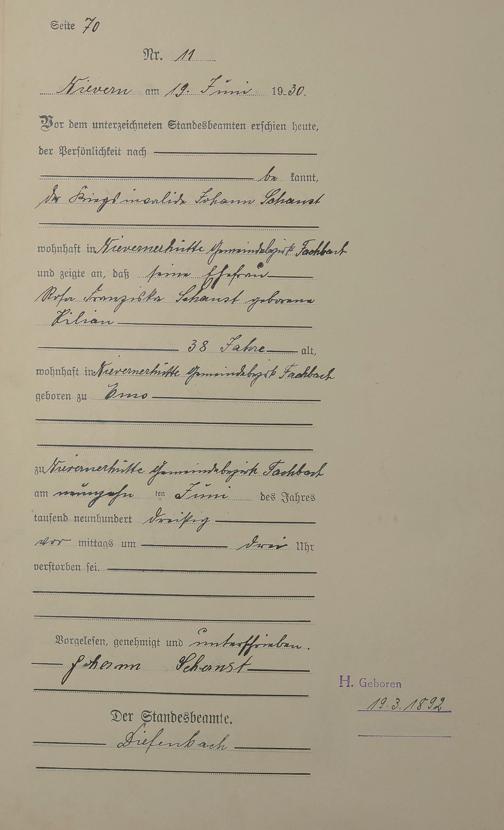 Seite 70
Nr. 11
Nievern am 19. Juni 1930.
Vor dem unterzeichneten Standesbeamten erschien heute,
der Persönlichkeit nach
be kannt,
der Kriegsinvalide Johann Schanst
wohnhaft in Nievernerhütte Gemeindebezirk Fachbach
und zeigte an, daß seine Ehefrau
Rosa Franziska Schanst geborene
Kilian
38 Jahre alt,
wohnhaft in Nievernerhütte Gemeindebezirk Fachbach
geboren zu Ems
zu Nievernerhütte Gemeindebezirk Fachbach
am neunzehn ten Juni des Jahres
tausend neunhundert dreißig
vor mittags um drei Uhr
verstorben sei.
Vorgelesen, genehmigt und unterschrieben.
Johann Schanst
H. Geboren
19.3.1892
Der Standesbeamte.
Diefenbach